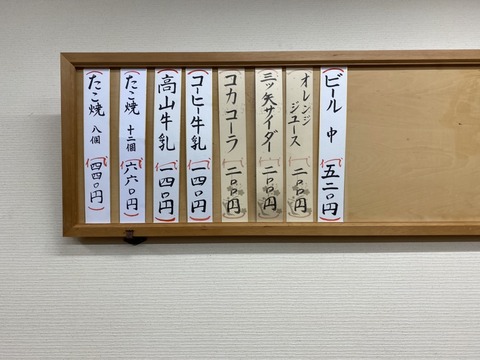 ビール 中 五二〇円
オレンジジュース 二〇〇円
三ツ矢サイダー 二〇〇円
コカコーラ 二〇〇円
コーヒー牛乳 一四〇円
高山牛乳 一四〇円
たこ焼 十二個 六六〇円
たこ焼 八個 四四〇円